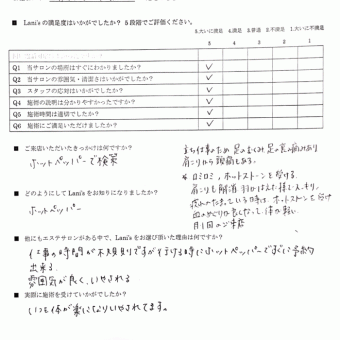 ■ Lani'sの満足度はいかがでしたか？ 5段階でご評価ください。
5.大いに満足 4.満足 3.普通 2.不満足 1.大いに不満足
5 4 3 2 1
Q1 当サロンの場所はすぐにわかりましたか？ ✓
Q2 当サロンの雰囲気・清潔さはいかがでしたか？ ✓
Q3 スタッフの応対はいかがでしたか？ ✓
Q4 施術の説明は分かりやすかったですか？ ✓
Q5 施術時間は適切でしたか？ ✓
Q6 施術にご満足いただけましたか？ ✓
■ ご来店いただいたきっかけは何ですか？
ホットペッパーで検索
■ どのようにしてLani'sをお知りになりましたか？
ホットペッパー
立ち仕事のため 足のむくみ 足の裏の痛みあり
肩こりから 頭痛もある。
ロミロミ、ホットストーンを受ける。
肩こりも解消
ホットストーンを受け
月1回のご来店
■ 他にもエステサロンがある中で、Lani'sをお選び頂いた理由は何ですか？
仕事の時間が不規則ですが行ける時にホットペッパーですぐに予約
出来る
雰囲気が良く、いやされる
■ 実際に施術を受けていかがでしたか？
いつも体が楽になりいやされてます。